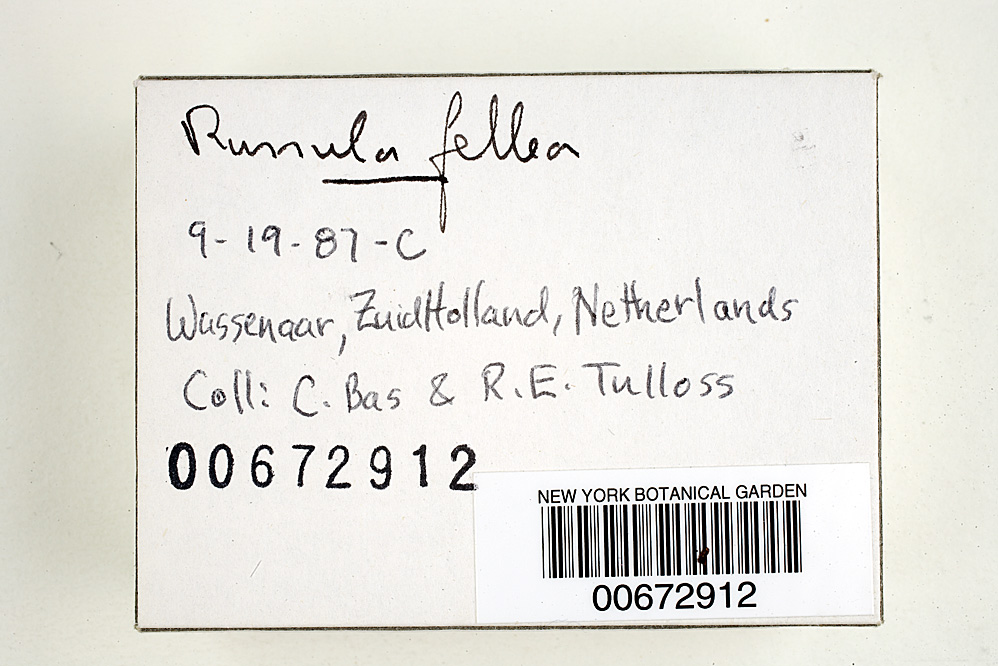 Russula fellea
9-19-87-C
Wassenaar, ZuidHolland, Netherlands
Coll: C. Bas & R.E. Tulloss
00672912
NEW YORK BOTANICAL GARDEN
00672912